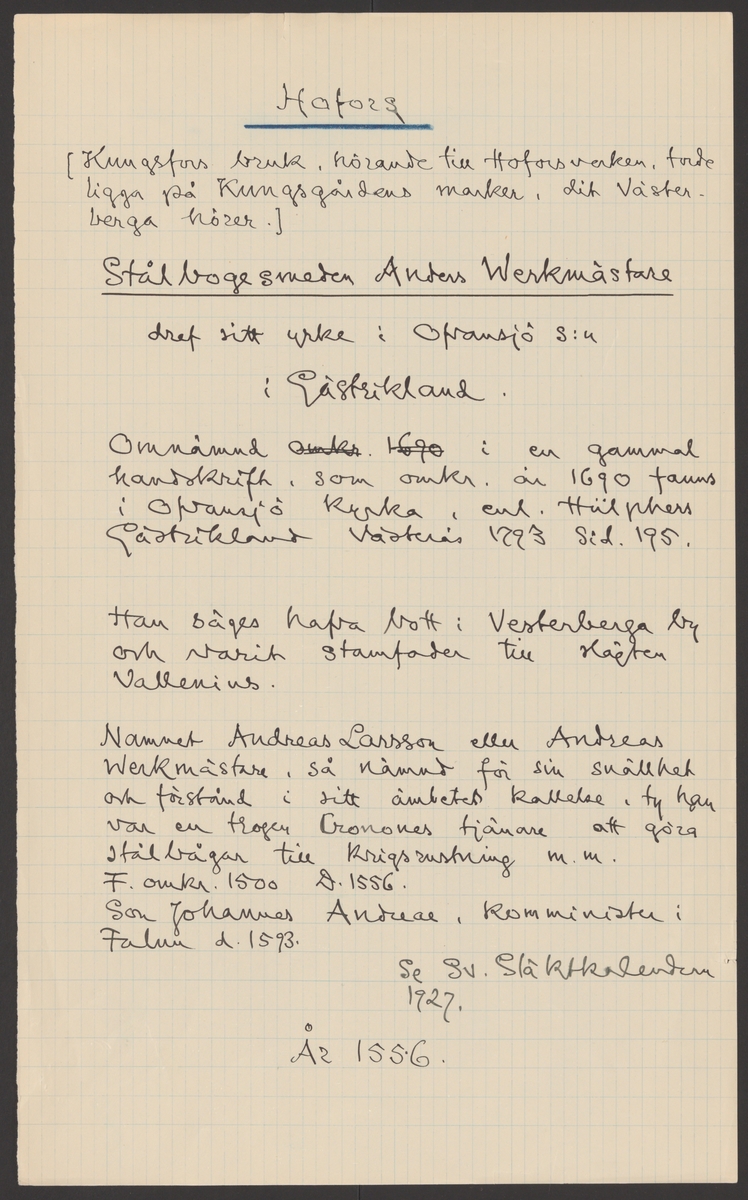 Hofors
[Kungsfors bruk, hörande till Hoforsverken, torde
ligga på Kungsgårdens marker, dit Väster-
berga hörer.]
Stålbogesmeden Anders Werkmästare
dref sitt yrke i Ofvansjö s:n
i Gästrikland.
Omnämnd omkr. 1690 i en gammal
handskrift, som omkr. år 1690 fanns
i Ofvansjö kyrka, enl. Hülphers
Gästrikland Västerås 1793 Sid. 195.
Han säges hafva bott i Vesterberga by
och varit stamfader till slägten
Vallenius.
Namnet Andreas Larsson eller Andreas
Werkmästare, så nämnd för sin snällhet
och förstånd i sitt ämbetets kallelse, ty han
var en trogen Cronones tjänare att göra
stålbågar till krigsrustning m.m.
F. omkr. 1500 D. 1556.
Son Johannes Andreae, komminister i
Falun d. 1593.
Se Sv. Släktkalendern
1927.
År 1556.